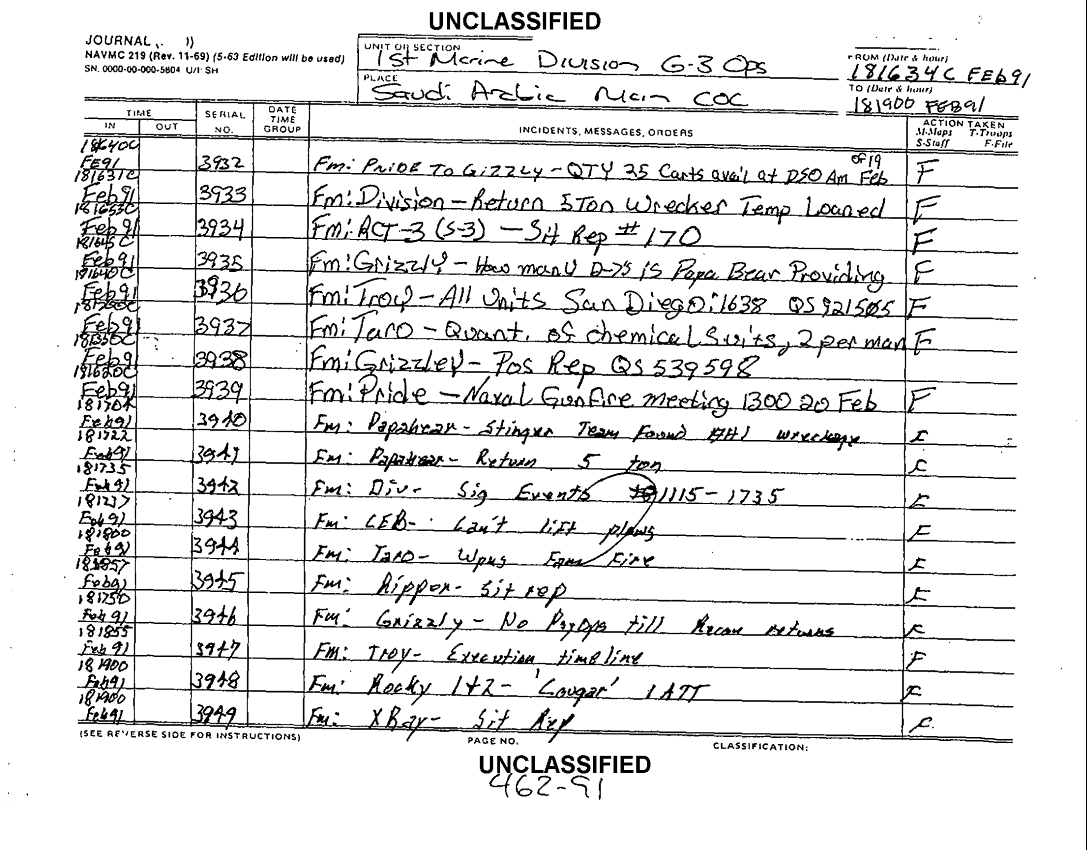 UNCLASSIFIED
JOURNAL
NAVMC 219 (Rev. 11-69) (5-63 Edition will be used)
SN. 0000-00-000-5804 U/I SH
UNIT OR SECTION
1st Marine Division G-3 Ops
FROM (Date & hour)
181634C FEB91
PLACE
Saudi Arabia Main COC
TO (Date & hour)
181900 FEB91
TIME
IN OUT
SERIAL NO.
DATE TIME GROUP
INCIDENTS, MESSAGES, ORDERS
ACTION TAKEN
M-Maps T-Troops
S-Staff F-File
181640C FE91 3932 Fm: PRIDE TO GIZZLY - QTY 35 Carts avail at DSO Am of 19 Feb F
181631C Feb91 3933 Fm: Division - Return 5Ton Wrecker Temp Loaned F
181653C Feb91 3934 Fm: ACT-3 (S-3) - Sit Rep #170 F
181645C Feb91 3935 Fm: Grizzly - How many D-7s is Papa Bear Providing F
181640C Feb91 3936 Fm: Troy - All Units San Diego: 1638 QS 921505 F
Feb91 3937 Fm: Taro - Quant. of chemical Suits, 2 per man F
Feb91 3938 Fm: Grizzley - Pos Rep QS 539598
181620C Feb91 3939 Fm: Pride - Naval Gunfire meeting 1300 20 Feb F
Feb91 3940 Fm: Papabear - Stinger Team Found AH1 wreckage F
181722 Feb91 3941 Fm: Papabear - Return 5 ton
181735 Feb91 3942 Fm: Div - Sig Events 1115-1735 F
Feb91 3943 Fm: CEB - Can't lift plows F
181800 Feb91 3944 Fm: Taro - Wpns Fam Fire F
Feb91 3945 Fm: Ripper - Sit rep F
181750 Feb91 3946 Fm: Grizzly - No PsyOps till Recon returns F
181855 Feb91 3947 Fm: Troy - Execution timeline F
181900 Feb91 3948 Fm: Rocky 1+2 - 'Cougar' 1ATT F
181900 Feb91 3949 Fm: X Ray - Sit Rep F
(SEE REVERSE SIDE FOR INSTRUCTIONS)
PAGE NO.
CLASSIFICATION:
UNCLASSIFIED
462-91